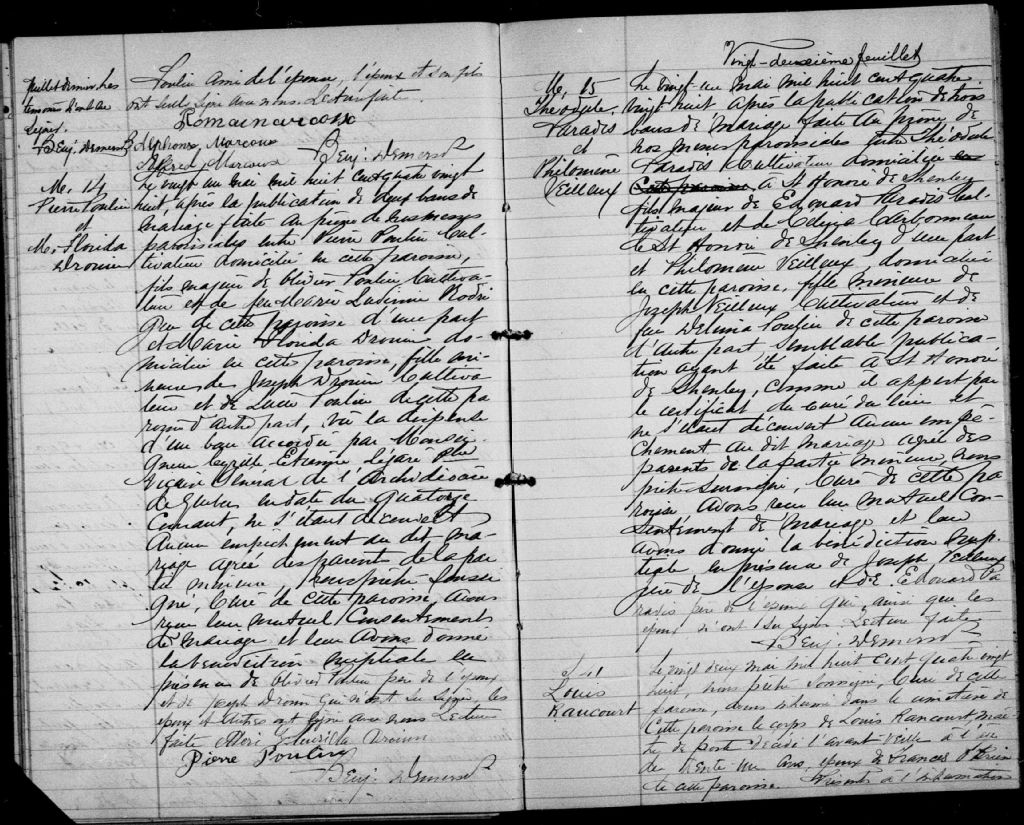 Poulin ami de l'épouse, l'époux et son fils
ont seuls signé avec nous. Lecture faite.
Romain Marcoux
Alphonse Marcoux
Alfred Marcoux Benj. Demers Ptr
témoins
signer.
Benj. Demers Ptr
M. 14
Pierre Poulin
et
M. Florida
Drouin
Le vingt un mai mil huit cent quatre vingt
huit, après la publication de deux bans de
mariage faite au prône de nos messes
paroissiales entre Pierre Poulin cul-
tivateur domicilié en cette paroisse,
fils majeur de Olivier Poulin cultiva-
teur et de feu Marie Rodri
gue de cette paroisse d'une part
et Marie Florida Drouin do-
miciliée en cette paroisse, fille mi-
neure de Joseph Drouin cultiva
teur et de Lucie Poulin de cette pa
roisse d'autre part, vu la dispense
d'un ban accordée par Monsei-
gneur Cyrille Etienne Légaré
Vicaire Général de l'Archidiocèse
de Québec en date du quatorze
courant, ne s'étant découvert
aucun empêchement au dit ma-
riage agréé des parents de la par
tie mineure, nous prêtre soussi
gné, curé de cette paroisse, avons
reçu leur mutuel consentement
de mariage et leur avons donné
la bénédiction nuptiale en
présence de Olivier Poulin père de l'époux
et de Joseph Drouin qui n'ont su signer, les
époux et autres ont signé avec nous. Lecture
faite. Drouin
Pierre Poulin
Benj. Demers Ptr
Vingt-deuxième feuillet
M. 15
Théodule
Paradis
et
Philomène
Veilleux
Le vingt un mai mil huit cent quatre
vingt huit après la publication de trois
bans de mariage faite au prône de
nos messes paroissiales entre Théodule
Paradis cultivateur domicilié en
cette paroisse à St Honoré de Shenley
fils majeur de Edouard Paradis cul-
tivateur et de Carbonneau
de St Honoré de Shenley d'une part
et Philomène Veilleux, domiciliée
en cette paroisse, fille mineure de
Joseph Veilleux cultivateur et de
feu Delima Poulin de cette paroisse
d'autre part semblable publica-
tion ayant été faite à St Honoré
de Shenley, comme il appert par
le certificat du curé du lieu et
ne s'étant découvert aucun empê-
chement au dit mariage agréé des
parents de la partie mineure, nous
prêtre soussigné, curé de cette pa
roisse, avons reçu leur mutuel con-
sentement de mariage et leur
avons donné la bénédiction nup-
tiale en présence de Joseph Veilleux
père de l'épouse et de Edouard Pa
radis père de l'époux qui ainsi que les
époux n'ont su signer. Lecture faite
Benj. Demers Ptr
Louis
Rancourt
Le vingt deux mai mil huit cent quatre vingt
huit, nous prêtre soussigné, curé de cette
paroisse, avons inhumé dans le cimetière de
cette paroisse le corps de Louis Rancourt,
décédé l'avant veille à l'âge
de trente un ans, époux de
de cette paroisse. Présents à l'inhumation